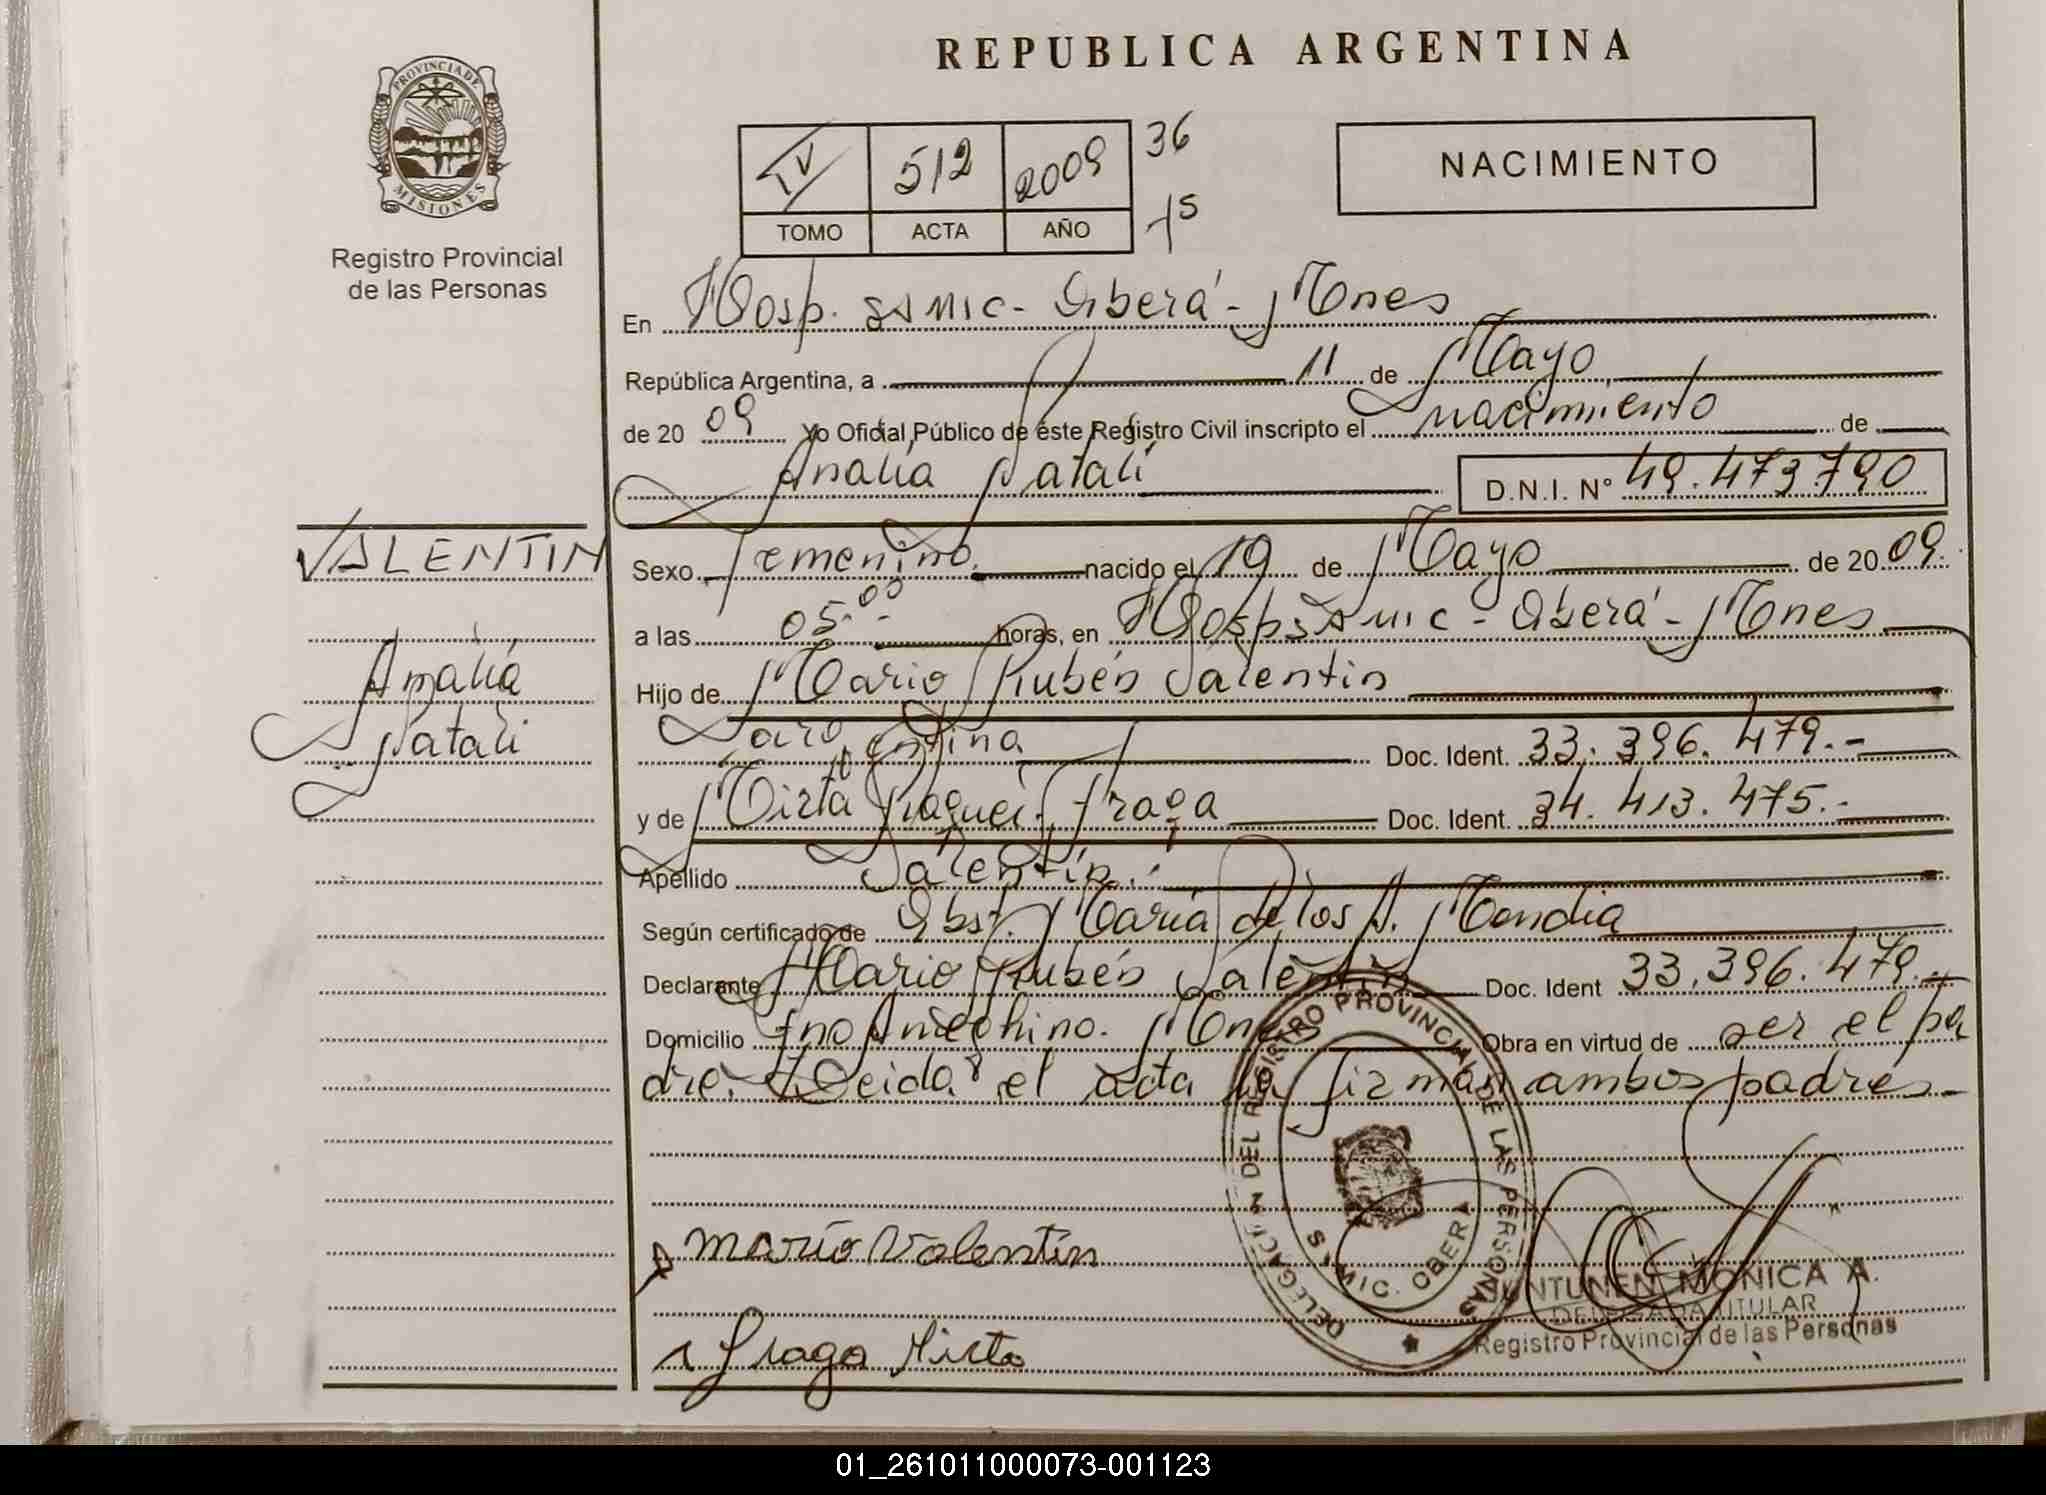 REPUBLICA ARGENTINA
PROVINCIA DE
MISIONES
Registro Provincial
de las Personas
IV 512 2009 36
TOMO ACTA AÑO 15
NACIMIENTO
En Hosp. SAMIC - Oberá - Mnes
República Argentina, a 11 de Mayo
de 2009 Yo Oficial Público de éste Registro Civil inscripto el nacimiento de
Analía Natalí D.N.I. Nº 49.473.790
VALENTIN
Analía
Natalí
Sexo Femenino. nacido el 10 de Mayo de 2009.
a las 05.00 horas, en Hosp SAMIC - Oberá - Mnes
Hijo de Mario Rubén Valentin
Doc. Ident. 33.396.479.-
y de Mirta Raquel Fraga Doc. Ident. 34.413.475.-
Apellido Valentín.
Según certificado de Obst. María de los A. Mendia
Declarante Mario Rubén Valentín Doc. Ident 33.396.479.-
Domicilio Mnes Obra en virtud de ser el pa
dre. Leida el acta la firman ambos padres.-
Mario Valentín
Fraga Mirta
DELEGACIÓN DEL REGISTRO PROVINCIAL DE LAS PERSONAS
SAMIC. OBERA
JUNTUNEN MONICA A.
DELEGADA TITULAR
Registro Provincial de las Personas
01_261011000073-001123